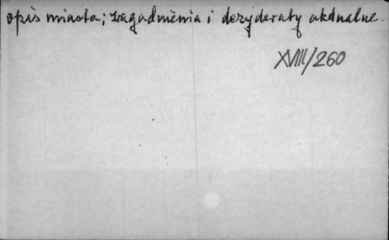 opis miasta; zagadnienia i dezyderaty aktualne.
XVIII/260